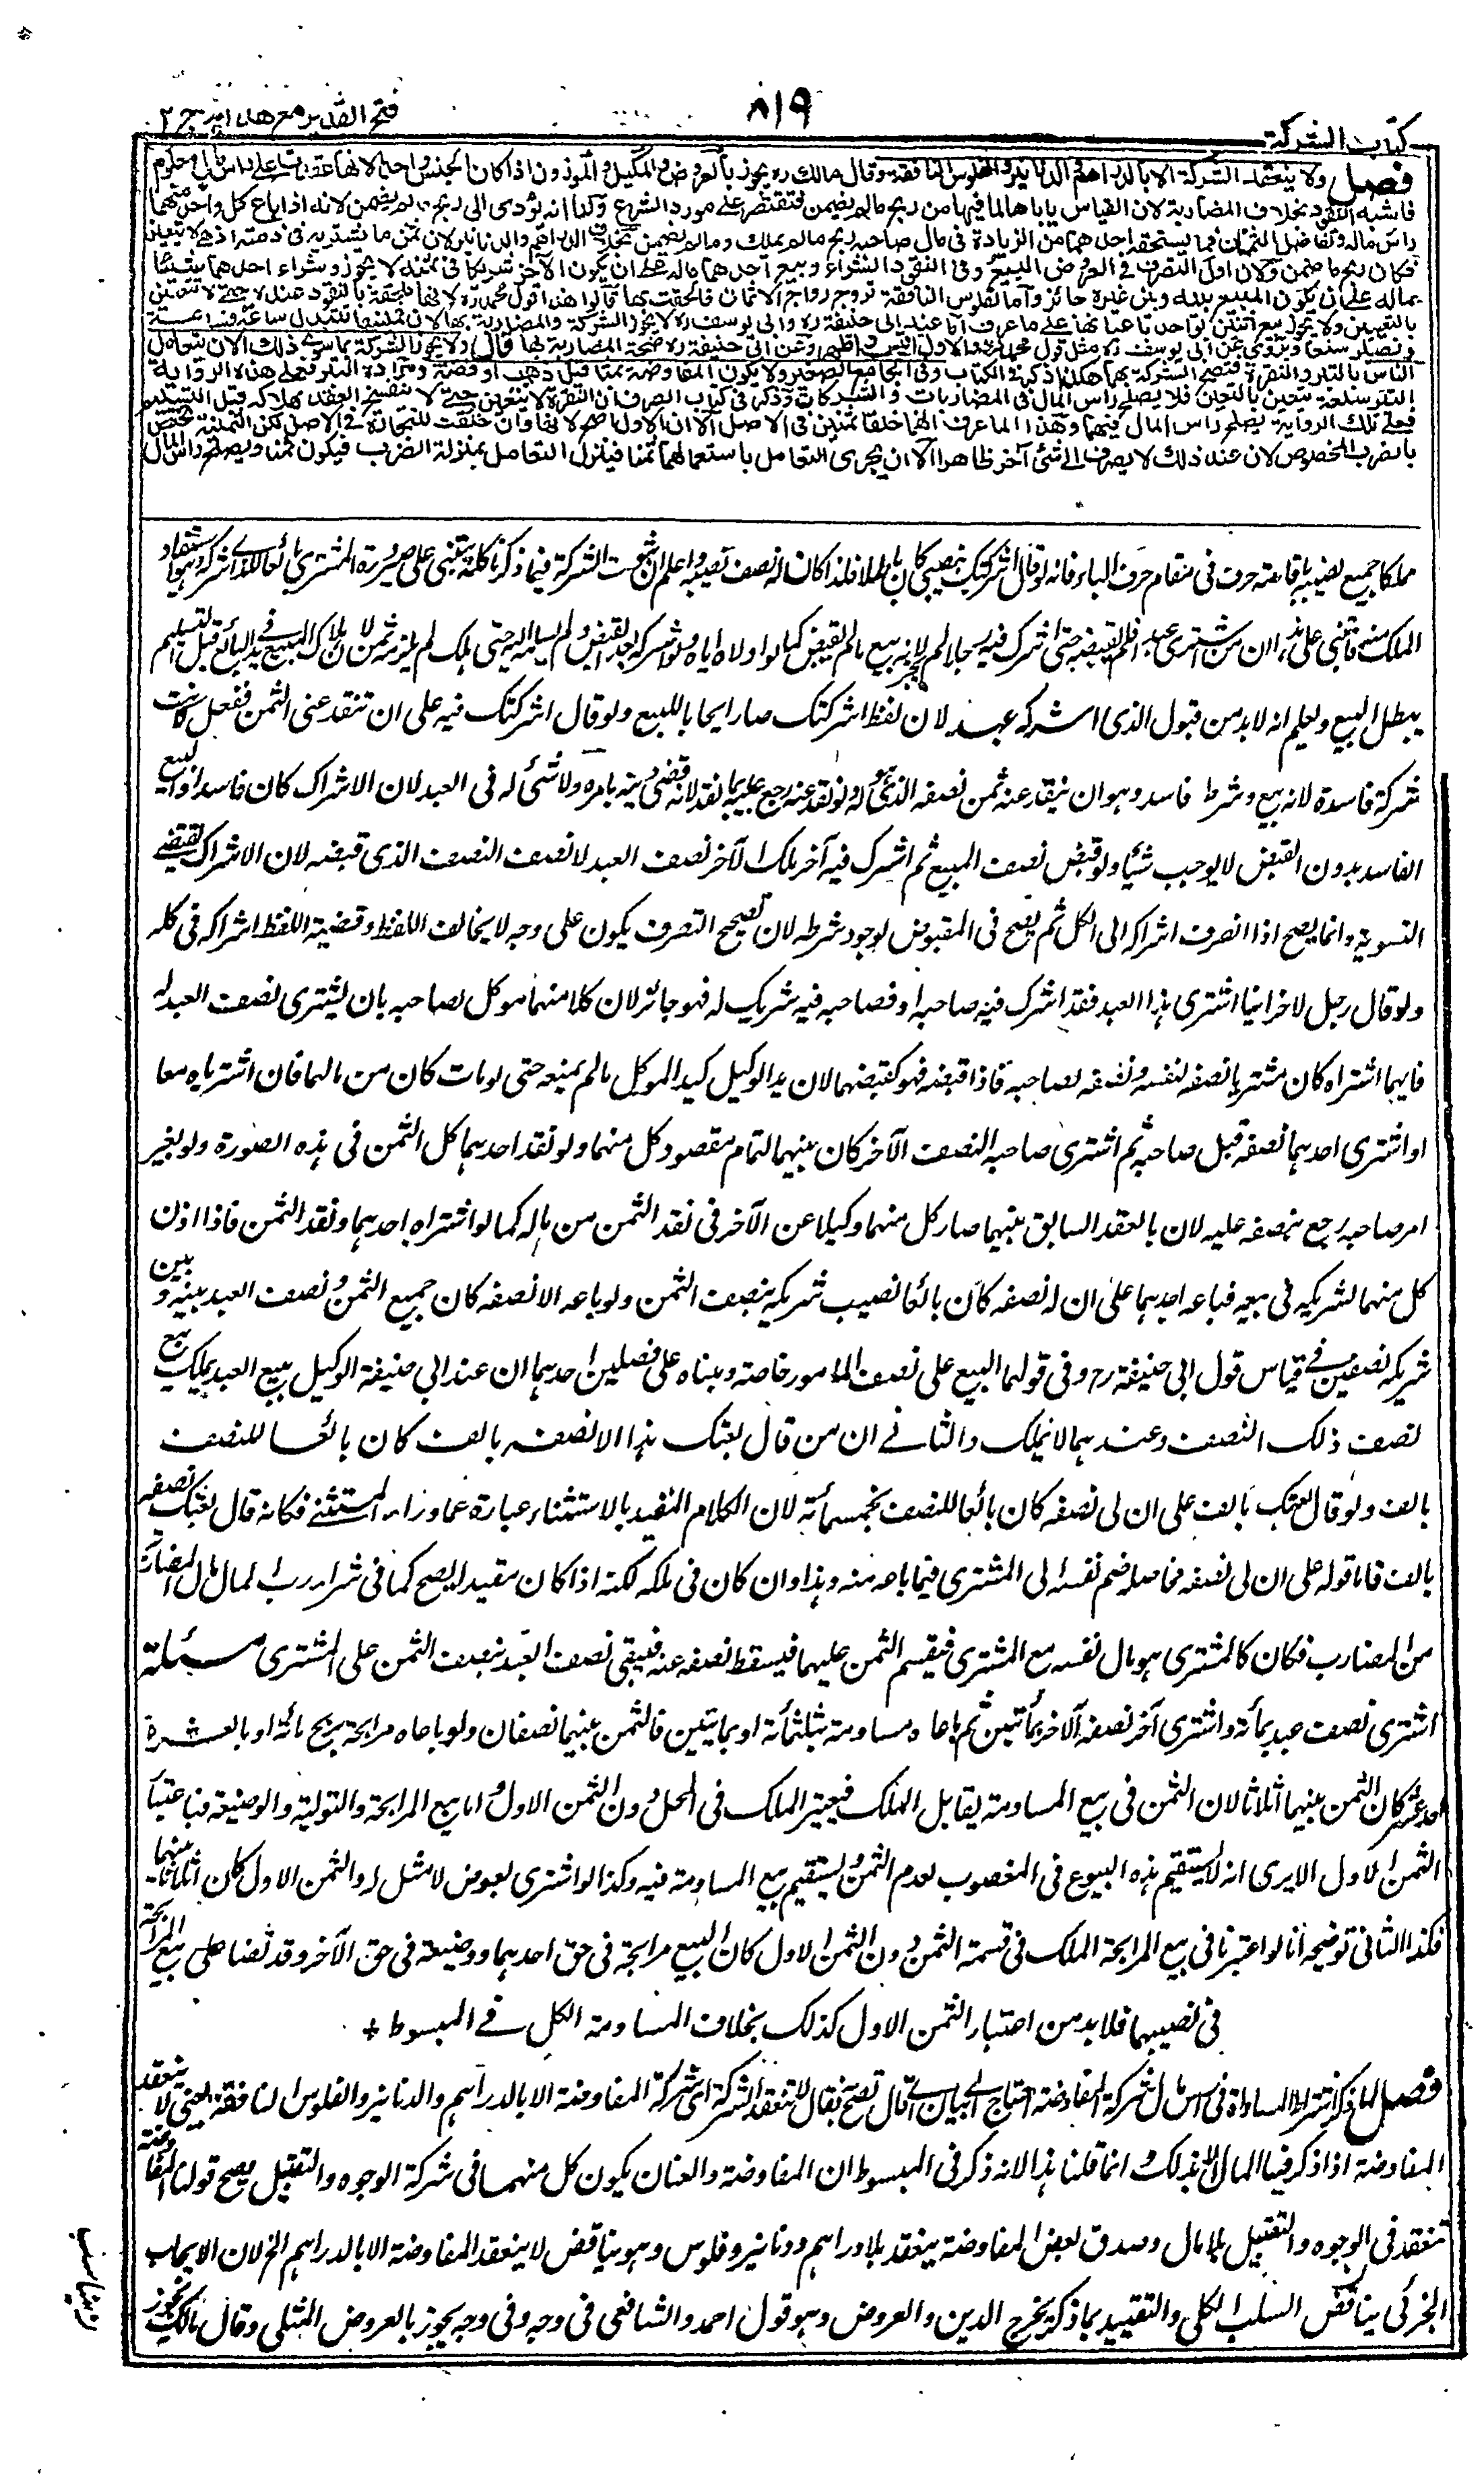 فتح القدير مع هدايه ج ٢
٨١٩
كتاب الشركة
فصل ولا ينعقد الشركة الا بالدراهم والدنانير والفلوس النافقة وقال مالك ره يجوز بالعروض والمكيل والموزون اذا كان الجنس واحدا لانها عقدت على راس مال معلوم
فاشبه النقود بخلاف المضاربة لان القياس ياباها لما فيها من ربح ما لم يضمن فتقتصر على مورد الشرع ولنا انه يؤدى الى ربح ما لم يضمن لانه اذا باع كل واحد منهما
راس ماله وتفاضل الثمنان فما يستحقه احدهما من الزيادة فى مال صاحبه ربح ما لم يملك وما لم يضمن بخلاف الدراهم والدنانير لان ثمن ما يشتريه فى ذمته اذ هى لا يتعين
فكان ربح ما ضمن ولان اول التصرف فى العروض البيع وفى النقود الشراء وبيع احدهما ماله على ان يكون الآخر شريكا فى ثمنه لا يجوز وشراء احدهما شيئا
بماله على ان يكون المبيع بينه وبين غيره جائز واما الفلوس النافقة تروج رواج الاثمان فالحقت بها قالوا هذا قول محمد ره لانها ملحقة بالنقود عنده حتى لا تتعين
بالتعيين ولا يجوز بيع اثنين بواحد باعيانها على ما عرف اما عند ابى حنيفة ره وابى يوسف ره لا يجوز الشركة والمضاربة بها لان ثمنيتها تتبدل ساعة فساعة
وتصير سلعا ويروى عن ابى يوسف ره مثل قول محمد ره والاول اقيس واظهر وعن ابى حنيفة ره صحة المضاربة بها قال ولا يجوز الشركة بما سوى ذلك الا ان يتعامل
الناس بالتبر والنقرة فتصح الشركة بهما هكذا ذكر فى الكتاب وفى الجامع الصغير ولا يكون المفاوضة بمثاقيل ذهب او فضة ومراده التبر فعلى هذه الرواية
التبر سلعة تتعين بالتعيين فلا يصلح راس المال فى المضاربات والشركات وذكر فى كتاب الصرف ان النقرة لا يتعين حتى لا ينفسخ العقد بهلاكه قبل التسليم
فعلى تلك الرواية يصلح راس المال فيهما وهذا لما عرف انهما خلقا ثمنين فى الاصل الا ان الاول اصح لانها وان خلقت للتجارة فى الاصل لكن الثمنية تختص
بالضرب المخصوص لان عند ذلك لا يصرف الى شئ آخر ظاهرا الا ان يجرى التعامل باستعمالهما ثمنا فينزل التعامل بمنزلة الضرب فيكون ثمنا ويصلح راس المال
مملكا جميع نصيبه باقامته حرف فى مقام حرف الباء فانه لو قال اشركتك بنصيبى كان باطلا فلذا كان له نصف نصيبه واعلم ان ثبوت الشركة فيما ذكرنا كله يبتنى على صيرورة المشترى بائعا للذى اشركه وهو استفاد
الملك منه فانبنى على هذا ان من اشترى عبدا فلم يقبضه حتى اشرك فيه رجلا لم يجز لانه بيع ما لم يقبض كما لو اولاه اياه ولو اشركه بعد القبض ولم يسلمه اليه حتى هلك لم يلزمه ثمن لان هلاك المبيع فى يد البائع قبل التسليم
يبطل البيع وليعلم انه لا بد من قبول الذى اشركه عبده لان لفظ اشركتك صار ايجابا للبيع ولو قال اشركتك فيه على ان تنقد عنى الثمن ففعل كانت
شركة فاسدة لانه بيع وشرط فاسد وهو ان ينقد عنه ثمن نصفه الذى هو له ولو نقد عنه رجع عليه بما نقد لانه قضى دينه بامره ولا شئ له فى العبد لان الاشراك كان فاسدا والبيع
الفاسد بدون القبض لا يوجب شيئا ولو قبض نصف المبيع ثم اشرك فيه آخر ملك الآخر نصف العبد لا نصف النصف الذى قبضه لان الاشراك يقتضى
التسوية وانما يصح اذا انصرف اشراكه الى الكل ثم يصح فى المقبوض لوجود شرطه لان تصحيح التصرف يكون على وجه لا يخالف اللفظ وقضية اللفظ اشراكه فى كله
ولو قال رجل لآخر اينا اشترى هذا العبد فقد اشرك فيه صاحبه او فصاحبه فيه شريك له فهو جائز لان كلا منهما موكل لصاحبه بان يشترى نصف العبد له
فايهما اشتراه كان مشتريا نصفه لنفسه ونصفه لصاحبه فاذا قبضه فهو كقبضهما لان يد الوكيل كيد الموكل ما لم يمنعه حتى لو مات كان من مالهما فان اشترياه معا
او اشترى احدهما نصفه قبل صاحبه ثم اشترى صاحبه النصف الآخر كان بينهما لتمام مقصود كل منهما ولو نقد احدهما كل الثمن فى هذه الصورة ولو بغير
امر صاحبه رجع بنصفه عليه لان بالعقد السابق بينهما صار كل منهما وكيلا عن الآخر فى نقد الثمن من ماله كما لو اشتراه احدهما ونقد الثمن فاذا اذن
كل منهما لشريكه فى بيعه فباعه احدهما على ان له نصفه كان بائعا نصيب شريكه بنصف الثمن ولو باعه الا نصفه كان جميع الثمن ونصف العبد بينه وبين
شريكه نصفين فى قياس قول ابى حنيفة رح وفى قولهما البيع على نصف المامور خاصة ومبناه على فصلين احدهما ان عند ابى حنيفة الوكيل ببيع العبد يملك بيع
نصف ذلك النصف وعندهما لا يملك والثانى ان من قال بعتك هذا الا نصفه بالف كان بائعا للنصف
بالف ولو قال بعتك بالف على ان لى نصفه كان بائعا للنصف بخمسمائة لان الكلام المقيد بالاستثناء عبارة عما وراء المستثنى فكانه قال بعتك نصفه
بالف فاما قوله على ان لى نصفه فحاصله ضم نفسه الى المشترى فيما باعه منه وهذا وان كان فى ملكه لكنه اذا كان مفيدا يصح كما فى شراء رب المال مال المضاربة
من المضارب فكان كالمشترى هو مال نفسه مع المشترى فيقسم الثمن عليهما فيسقط نصفه عنه فيبقى نصف العبد بنصف الثمن على المشترى مسئلة
اشترى نصف عبد بمائة واشترى آخر نصفه الآخر بمأتين ثم باعاه مساومة بثلثمائة او بمايتين فالثمن بينهما نصفان ولو باعاه مرابحة بربح مائة او بالعشرة
احد عشر كان الثمن بينهما اثلاثا لان الثمن فى بيع المساومة يقابل الملك فيعتبر الملك فى المحل دون الثمن الاول واما بيع المرابحة والتولية والوضيعة فباعتبار
الثمن الاول الا يرى انه لا يستقيم هذه البيوع فى المغصوب لعدم الثمن ويستقيم بيع المساومة فيه وكذا لو اشترى بعوض لا مثل له والثمن الاول كان اثلاثا بينهما
فكذا الثانى توضيحه انا لو اعتبرنا فى بيع المرابحة الملك فى قسمة الثمن دون الثمن الاول كان البيع مرابحة فى حق احدهما ووضيعة فى حق الآخر وقد نصا على بيع المرابحة
فى نصيبهما فلا بد من اعتبار الثمن الاول كذلك بخلاف المساومة الكل فى المبسوط +
فصل لما ذكر اشتراط المساواة فى راس مال شركة المفاوضة احتاج الى بيان اى مال تصح فقال لا تنعقد الشركة اى شركة المفاوضة الا بالدراهم والدنانير والفلوس النافقة يعنى لا ينعقد
المفاوضة اذا ذكر فيها المال الا بذلك وانما قلنا هذا لانه ذكر فى المبسوط ان المفاوضة والعنان يكون كل منهما فى شركة الوجوه والتقبيل يصح قولنا المفاوضة
تنعقد فى الوجوه والتقبيل بلا مال وصدق بعض المفاوضة ينعقد بلا دراهم ودنانير وفلوس وهو يناقض لا ينعقد المفاوضة الا بالدراهم الخ لان الايجاب
الجزئى يناقض السلب الكلى والتقييد بما ذكر يخرج الدين والعروض وهو قول احمد والشافعى فى وجه وفى وجه يجوز بالعروض المثلى وقال مالك يجوز